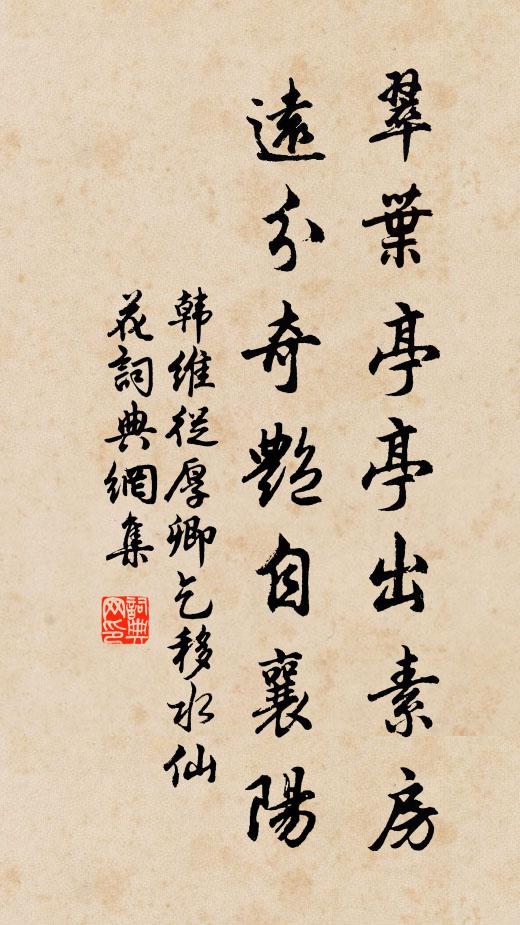 翠葉亭亭出素房
遠分奇艷自襄陽
韩維從厚卿乞移水仙
花詞典網集
詞典
网印